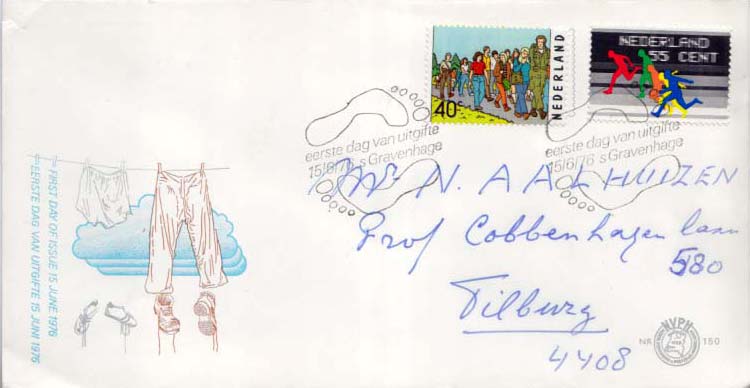 40c
NEDERLAND
NEDERLAND
55 CENT
eerste dag van uitgifte
15/6/76 's Gravenhage
eerste dag van uitgifte
15/6/76 's Gravenhage
FIRST DAY OF ISSUE 15 JUNE 1976
EERSTE DAG VAN UITGIFTE 15 JUNI 1976
N. AALHUIZEN
Prof Cobbenhagen laan
580
Tilburg
4408
NR. 150
NVPH